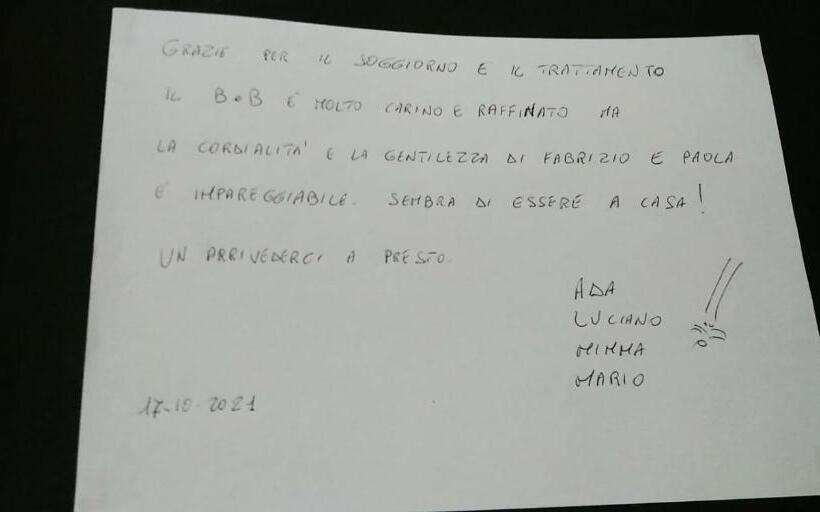 GRAZIE PER IL SOGGIORNO E IL TRATTAMENTO
IL B&B E' MOLTO CARINO E RAFFINATO MA
LA CORDIALITA' E LA GENTILEZZA DI FABRIZIO E PAOLA
E' IMPAREGGIABILE. SEMBRA DI ESSERE A CASA!
UN ARRIVEDERCI A PRESTO.
ADA
LUCIANO
MIMMA
MARIO
17-10-2021